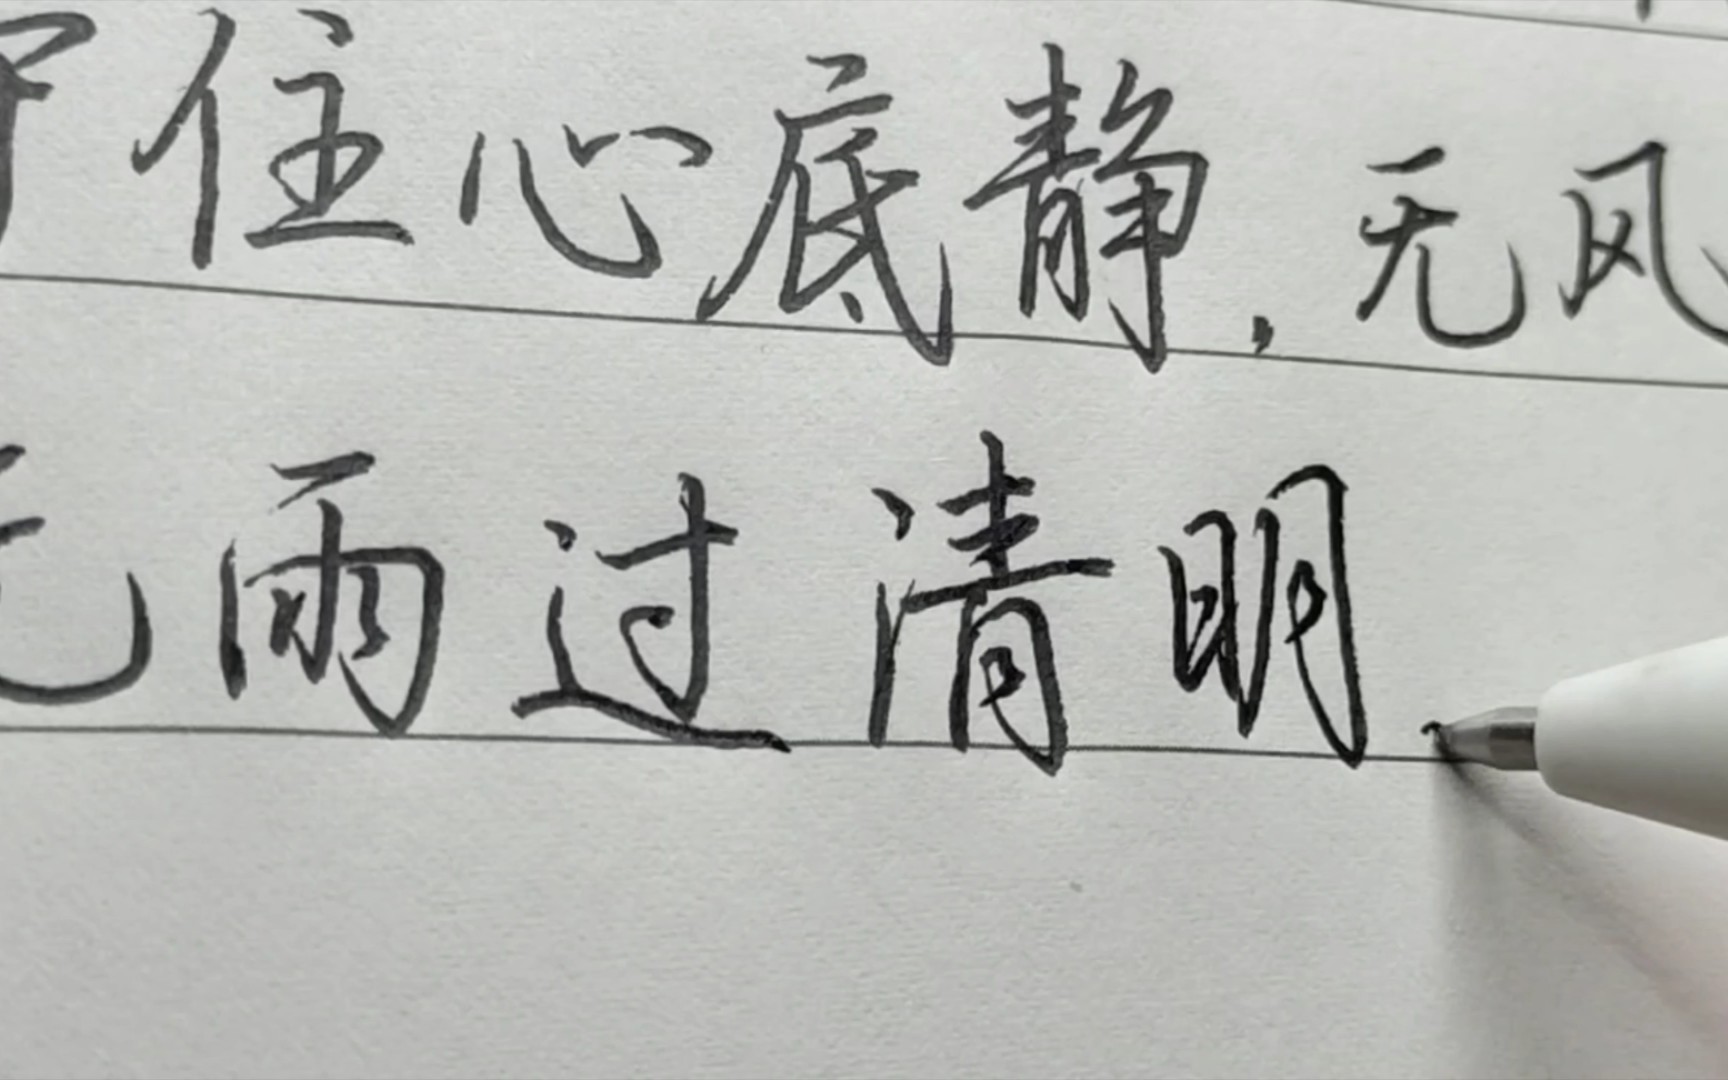 住心底静，无风
无雨过清明